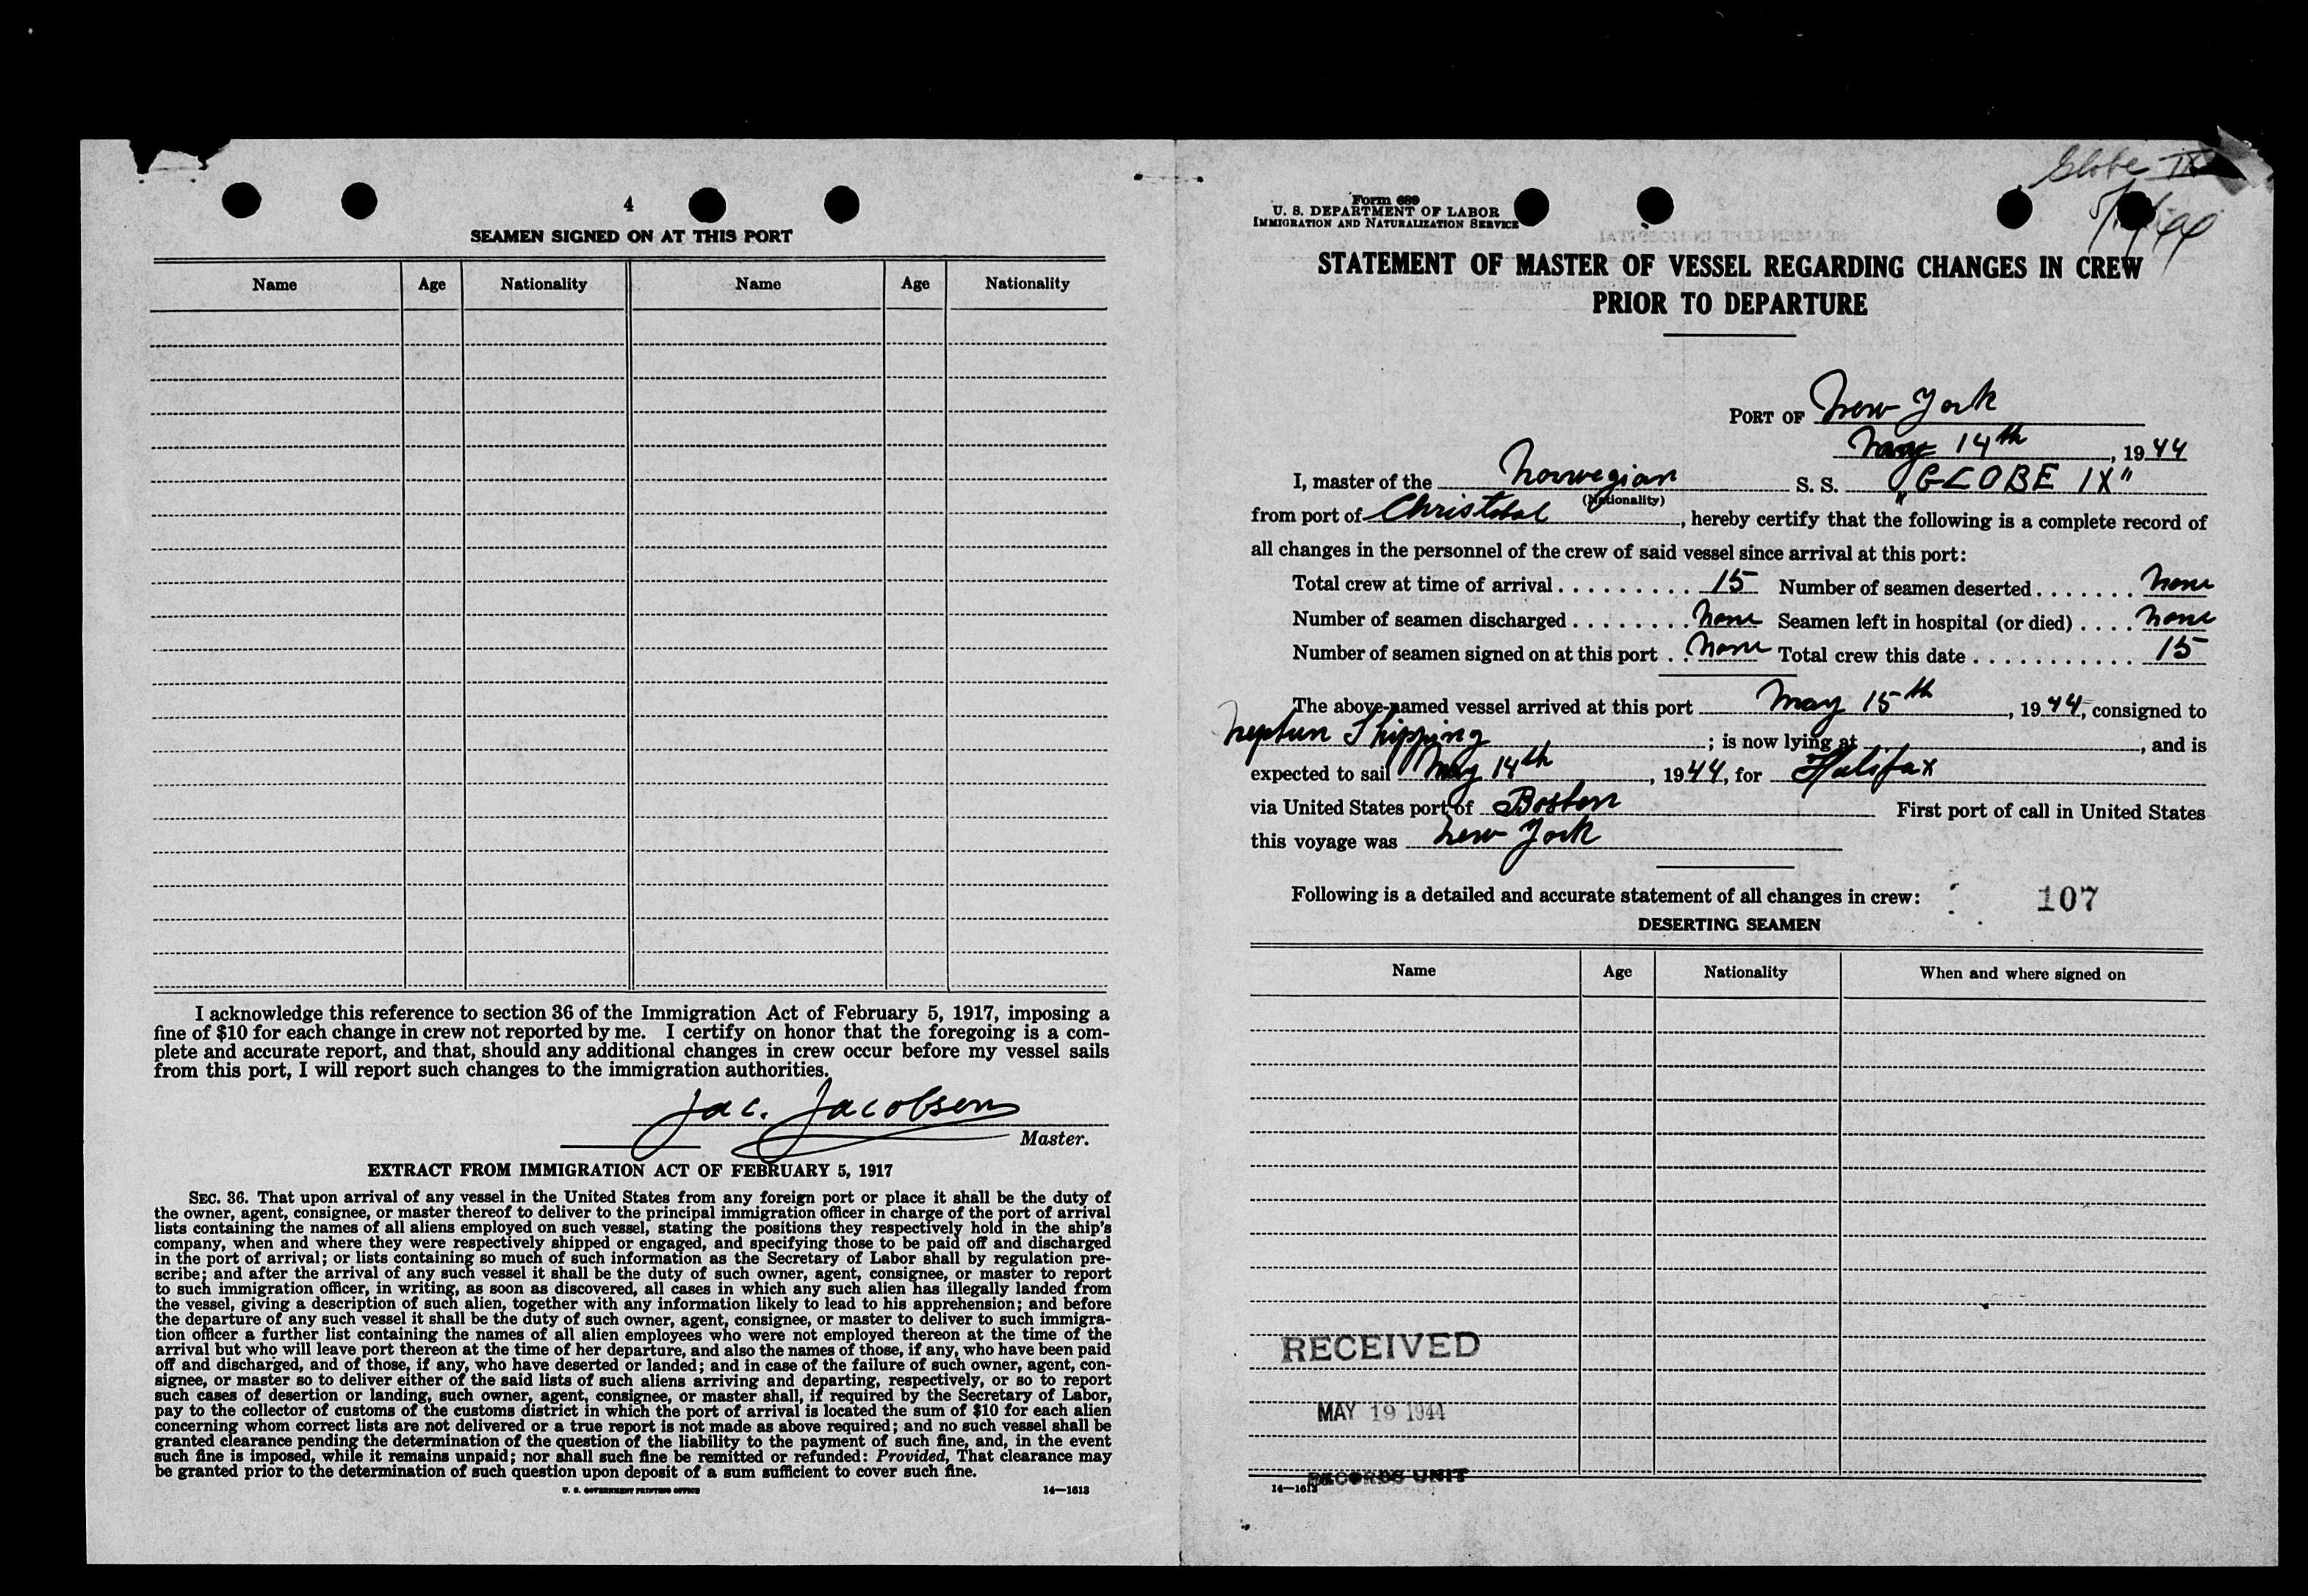 4
SEAMEN SIGNED ON AT THIS PORT
Name Age Nationality Name Age Nationality
I acknowledge this reference to section 36 of the Immigration Act of February 5, 1917, imposing a
fine of $10 for each change in crew not reported by me. I certify on honor that the foregoing is a com-
plete and accurate report, and that, should any additional changes in crew occur before my vessel sails
from this port, I will report such changes to the immigration authorities.
Jac. Jacobsen
Master.
EXTRACT FROM IMMIGRATION ACT OF FEBRUARY 5, 1917
SEC. 36. That upon arrival of any vessel in the United States from any foreign port or place it shall be the duty of
the owner, agent, consignee, or master thereof to deliver to the principal immigration officer in charge of the port of arrival
lists containing the names of all aliens employed on such vessel, stating the positions they respectively hold in the ship's
company, when and where they were respectively shipped or engaged, and specifying those to be paid off and discharged
in the port of arrival; or lists containing so much of such information as the Secretary of Labor shall by regulation pre-
scribe; and after the arrival of any such vessel it shall be the duty of such owner, agent, consignee, or master to report
to such immigration officer, in writing, as soon as discovered, all cases in which any such alien has illegally landed from
the vessel, giving a description of such alien, together with any information likely to lead to his apprehension; and before
the departure of any such vessel it shall be the duty of such owner, agent, consignee, or master to deliver to such immigra-
tion officer a further list containing the names of all alien employees who were not employed thereon at the time of the
arrival but who will leave port thereon at the time of her departure, and also the names of those, if any, who have been paid
off and discharged, and of those, if any, who have deserted or landed; and in case of the failure of such owner, agent, con-
signee, or master so to deliver either of the said lists of such aliens arriving and departing, respectively, or so to report
such cases of desertion or landing, such owner, agent, consignee, or master shall, if required by the Secretary of Labor,
pay to the collector of customs of the customs district in which the port of arrival is located the sum of $10 for each alien
concerning whom correct lists are not delivered or a true report is not made as above required; and no such vessel shall be
granted clearance pending the determination of the question of the liability to the payment of such fine, and, in the event
such fine is imposed, while it remains unpaid; nor shall such fine be remitted or refunded: Provided, That clearance may
be granted prior to the determination of such question upon deposit of a sum sufficient to cover such fine.
U. S. GOVERNMENT PRINTING OFFICE 14—1613
Globe IX
Form 689
U. S. DEPARTMENT OF LABOR
IMMIGRATION AND NATURALIZATION SERVICE
STATEMENT OF MASTER OF VESSEL REGARDING CHANGES IN CREW
PRIOR TO DEPARTURE
PORT OF New York
May 14th, 1944
I, master of the Norwegian S. S. "GLOBE IX"
(Nationality)
from port of Christobal, hereby certify that the following is a complete record of
all changes in the personnel of the crew of said vessel since arrival at this port:
Total crew at time of arrival . . . . . . . . . . 15 Number of seamen deserted . . . . . . . None
Number of seamen discharged . . . . . . . . None Seamen left in hospital (or died) . . . . None
Number of seamen signed on at this port . . None Total crew this date . . . . . . . . . . . . 15
The above-named vessel arrived at this port May 15th, 1944, consigned to
Neptun Shipping; is now lying at , and is
expected to sail May 14th, 1944, for Halifax
via United States port of Boston First port of call in United States
this voyage was New York
Following is a detailed and accurate statement of all changes in crew: 107
DESERTING SEAMEN
Name Age Nationality When and where signed on
RECEIVED
MAY 19 1944
RECORDS UNIT
14—1613